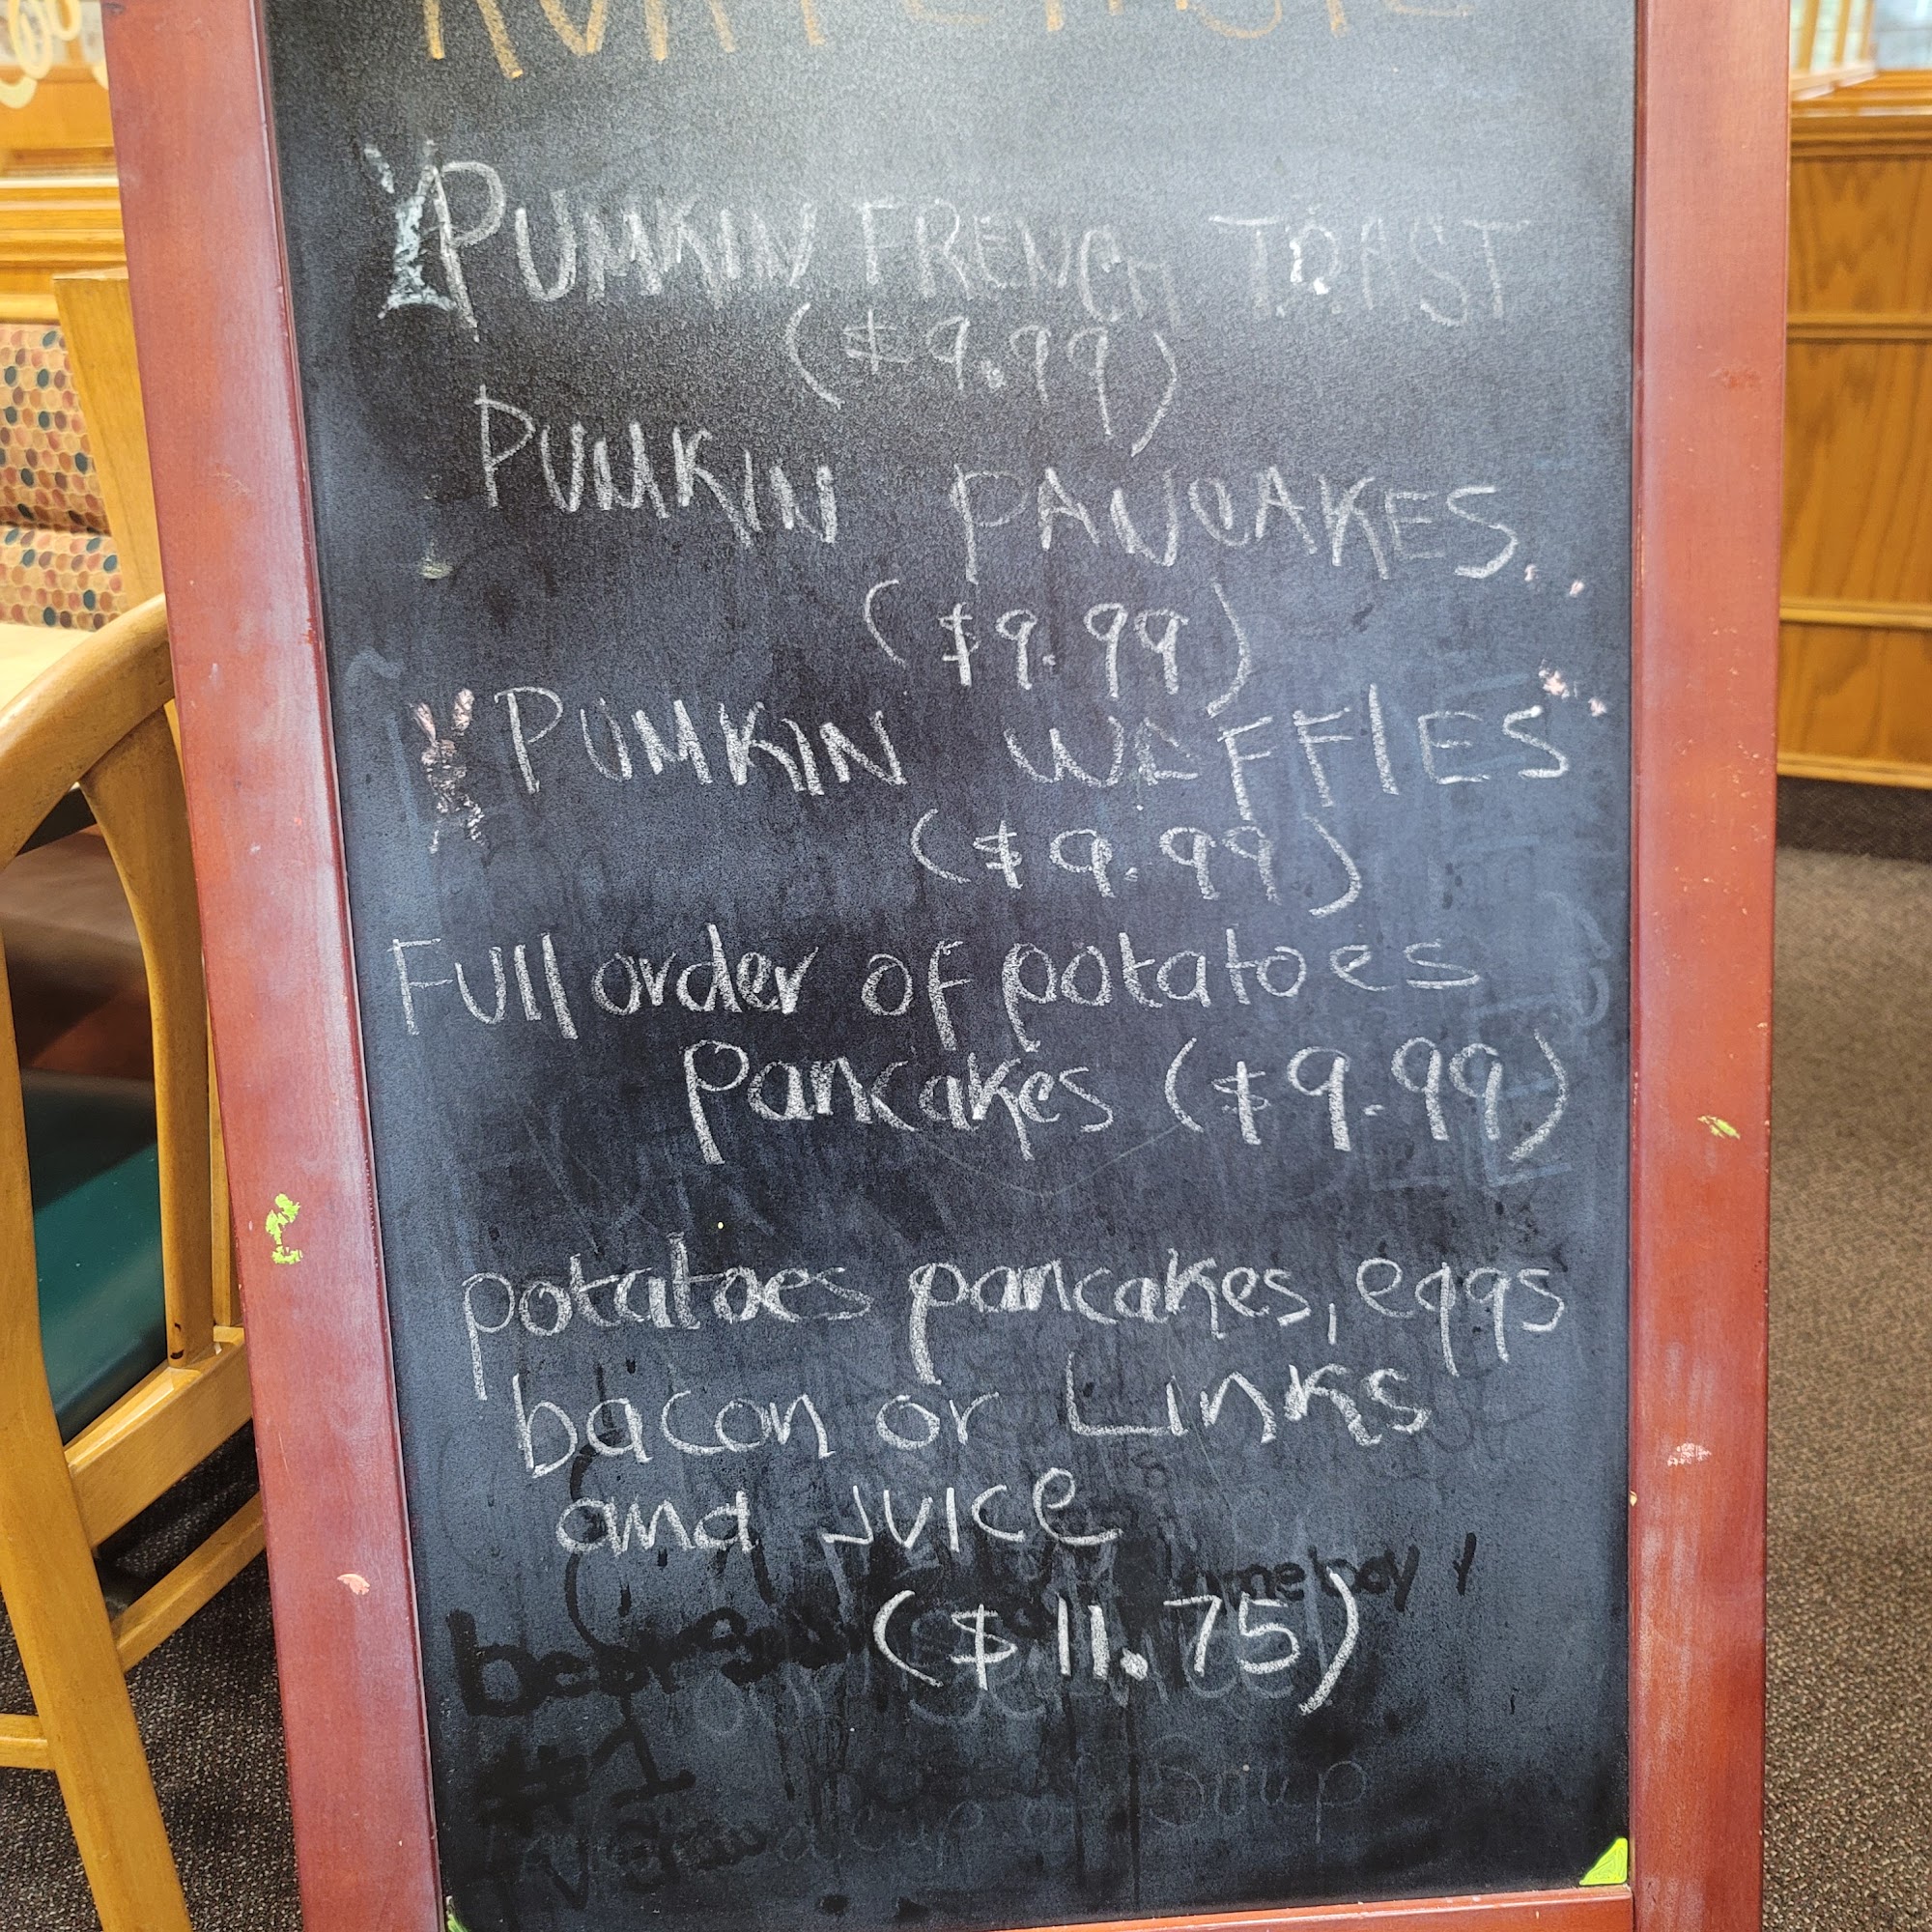 PUMKIN FRENCH TOAST
($9.99)
PUMKIN PANCAKES
($9.99)
PUMKIN WEFFLES
($9.99)
Full order of potatoes
pancakes ($9.99)
potatoes pancakes, eggs
bacon or Links
and JUICE
($11.75)
#1
cup of Soup